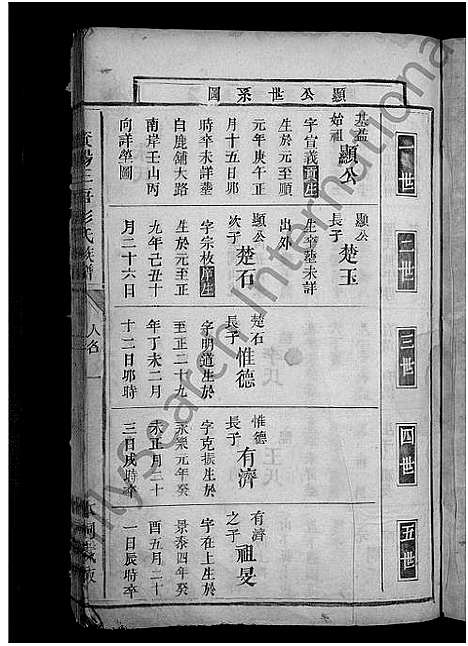 顯公世系圖
一世
二世
三世
四世
五世
基益
始祖
顯公
字宣義貢生
生於元至順
元年庚午正
月十五日卯
時卒未詳塟
白鹿舖大路
南岸壬山丙
向詳塋圖
顯公
長子
楚玉
生卒塟未詳
出外
顯公
次子
楚石
字宗枚庠生
生於元至正
九年己丑十
月二十六日
楚石
長子
惟德
字明道生於
至正二十九
年丁未二月
十二日卯時
惟德
長子
有濟
字克振生於
永樂元年癸
未正月二十
三日戌時卒
有濟
之子
祖旻
字在上生於
景泰四年癸
酉五月二十
一日辰時卒
彭氏族譜
人名
一
MySearch International